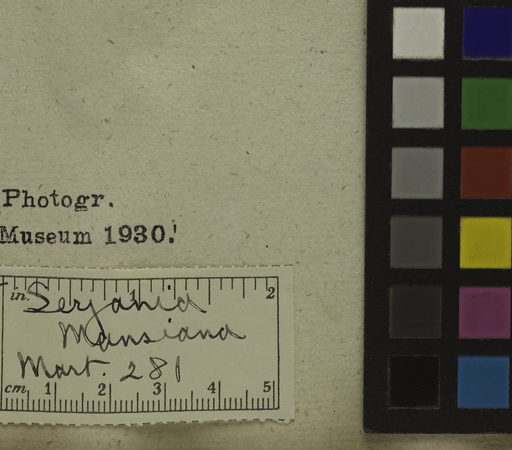 Photogr.
Museum 1930.
in. 1 2
Serjania
Mansiana
Mart. 281
cm 1 2 3 4 5